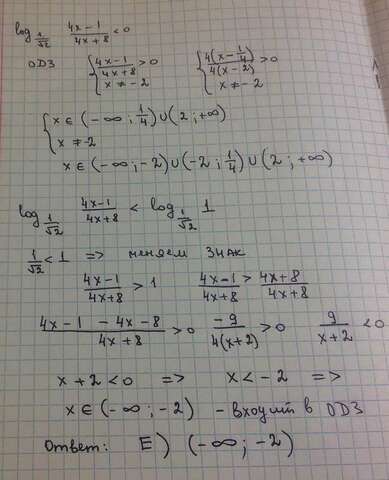 log_{1/√2} (4x-1)/(4x+8) < 0
ODЗ { (4x-1)/(4x+8) > 0 ; x ≠ -2 { 4(x-1/4)/4(x-2) > 0 ; x ≠ -2
{ x ∈ (-∞; 1/4) ∪ (2; +∞) ; x ≠ -2
x ∈ (-∞; -2) ∪ (-2; 1/4) ∪ (2; +∞)
log_{1/√2} (4x-1)/(4x+8) < log_{1/√2} 1
1/√2 < 1 => меняем знак
(4x-1)/(4x+8) > 1 (4x-1)/(4x+8) > (4x+8)/(4x+8)
(4x-1-4x-8)/(4x+8) > 0 -9/4(x+2) > 0 9/(x+2) < 0
x+2 < 0 => x < -2 =>
x ∈ (-∞; -2) - входит в ODЗ
Ответ: E) (-∞; -2)